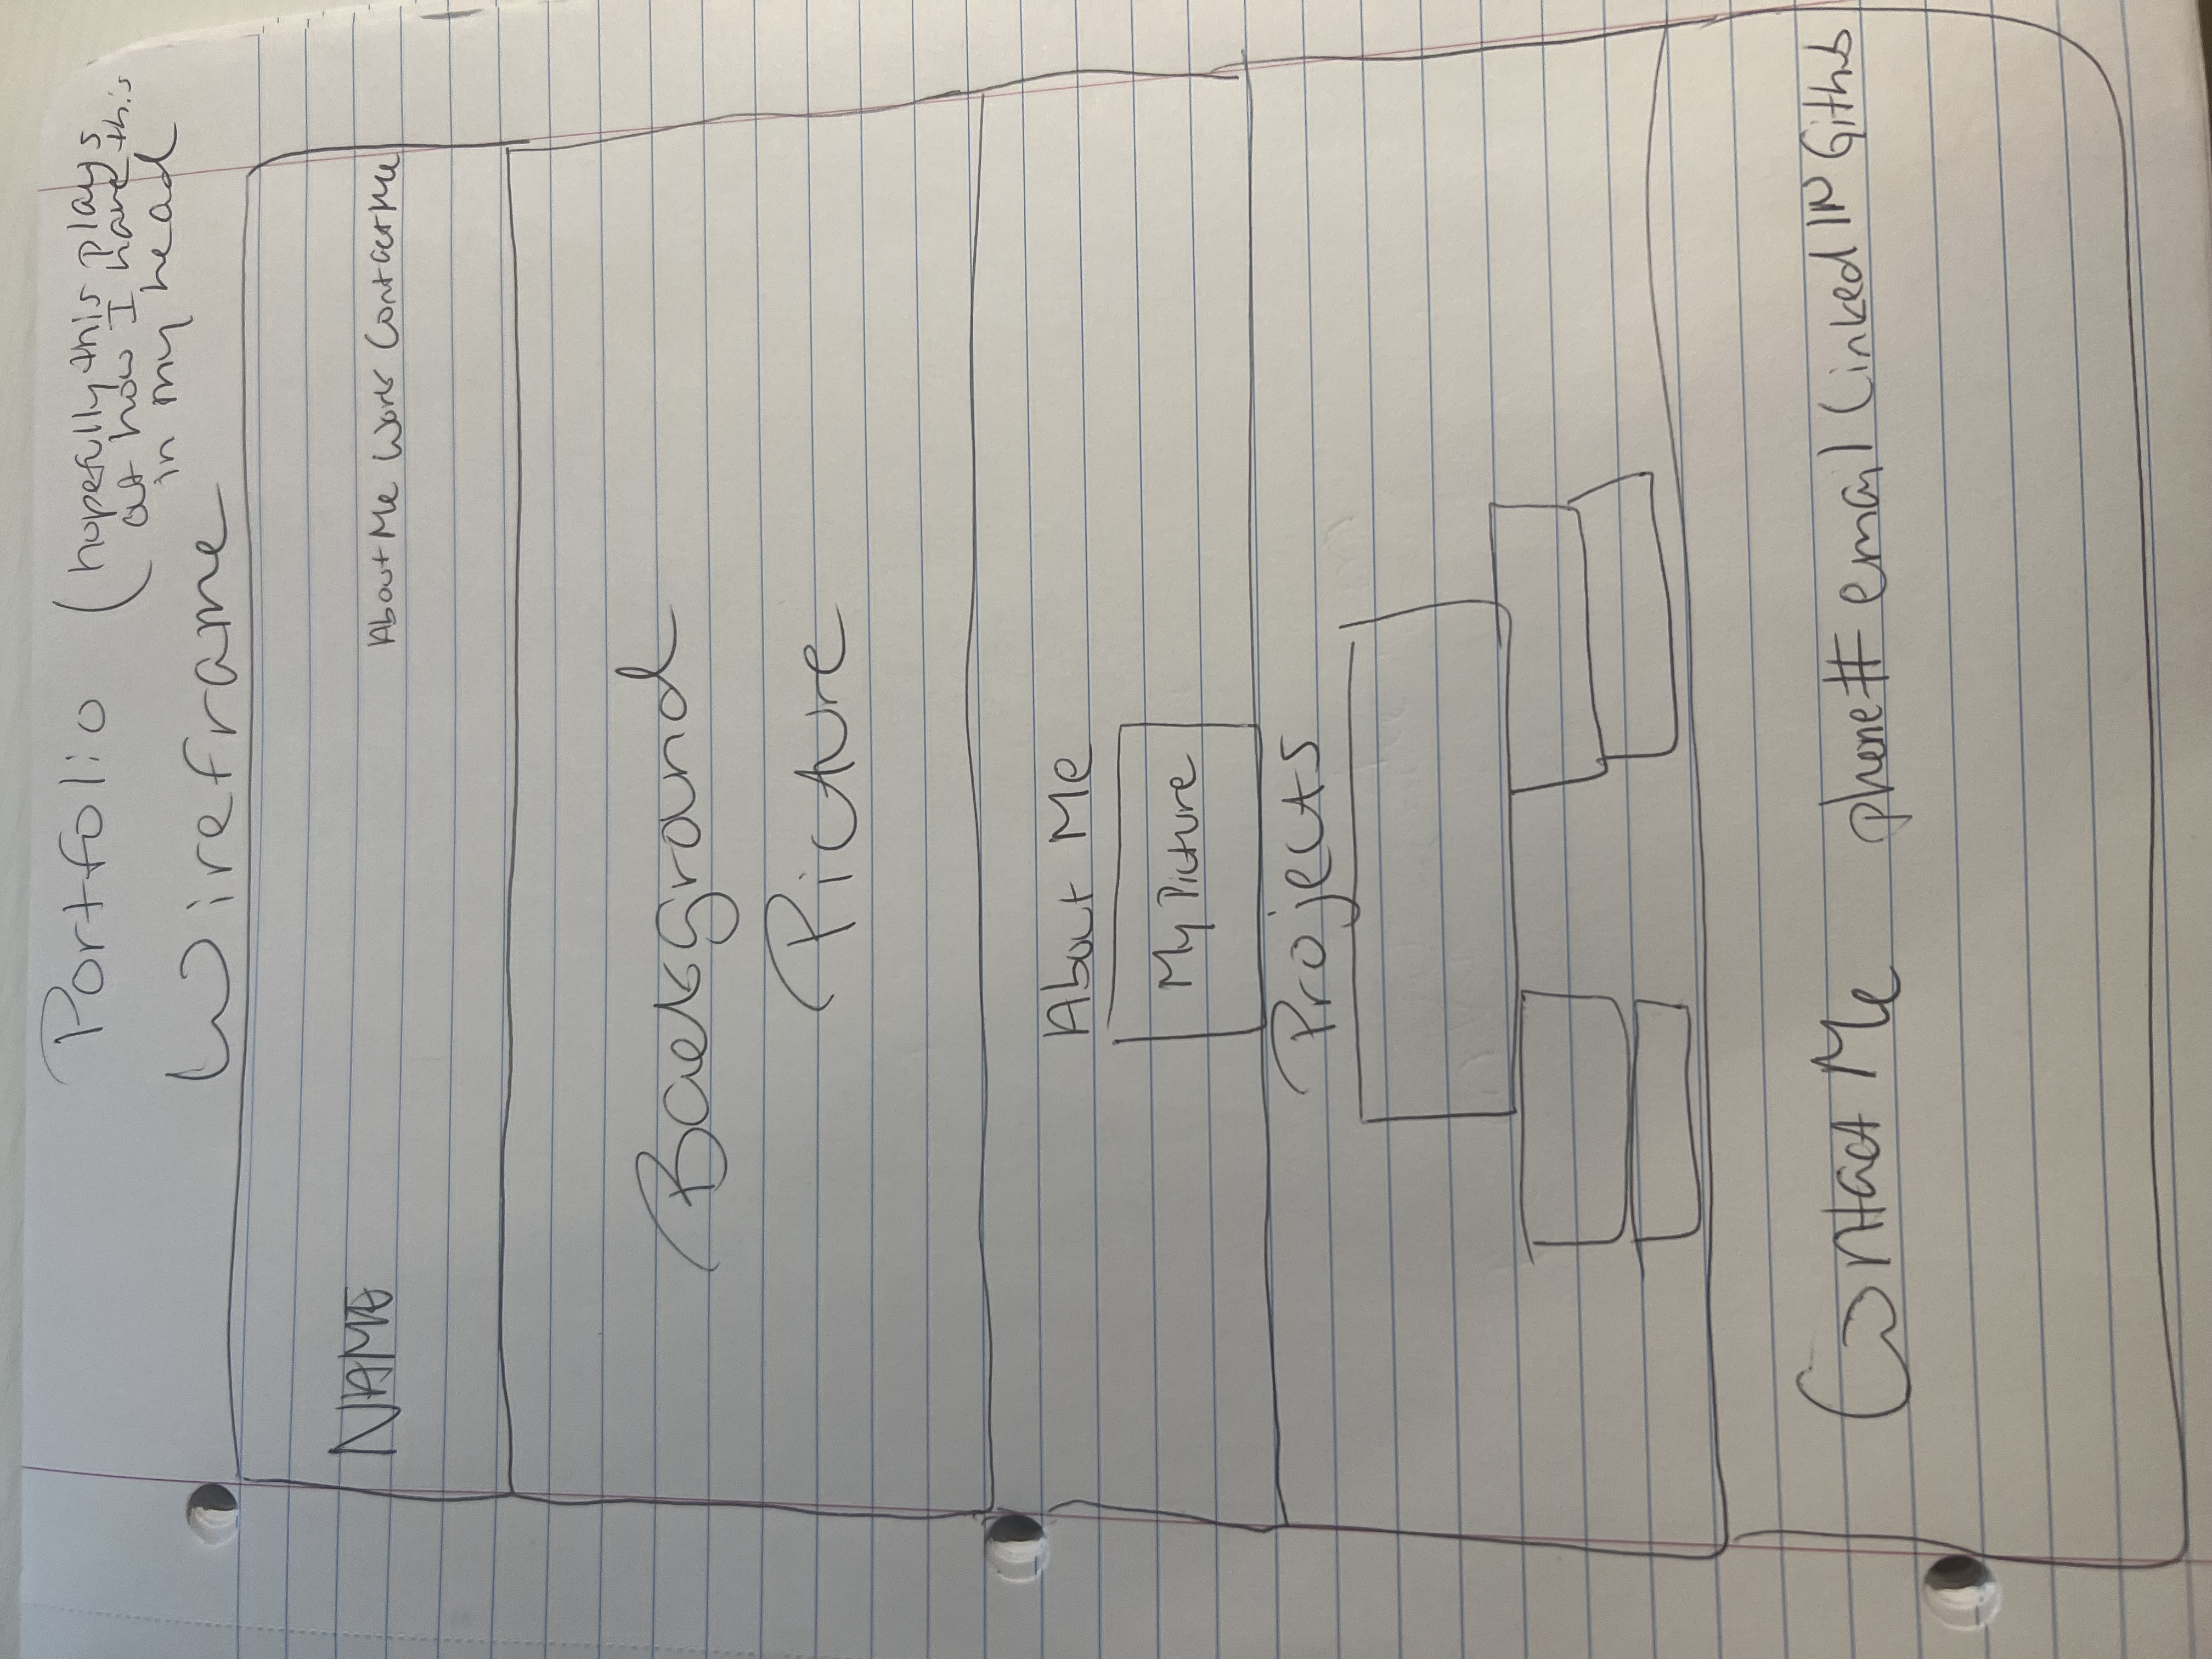 Portfolio (hopefully this plays
out how I have this
in my head
Wireframe
NAME
About Me Work Contact Me
Background
Picture
About Me
My Picture
Projects
Contact Me phone# email LinkedIN Github